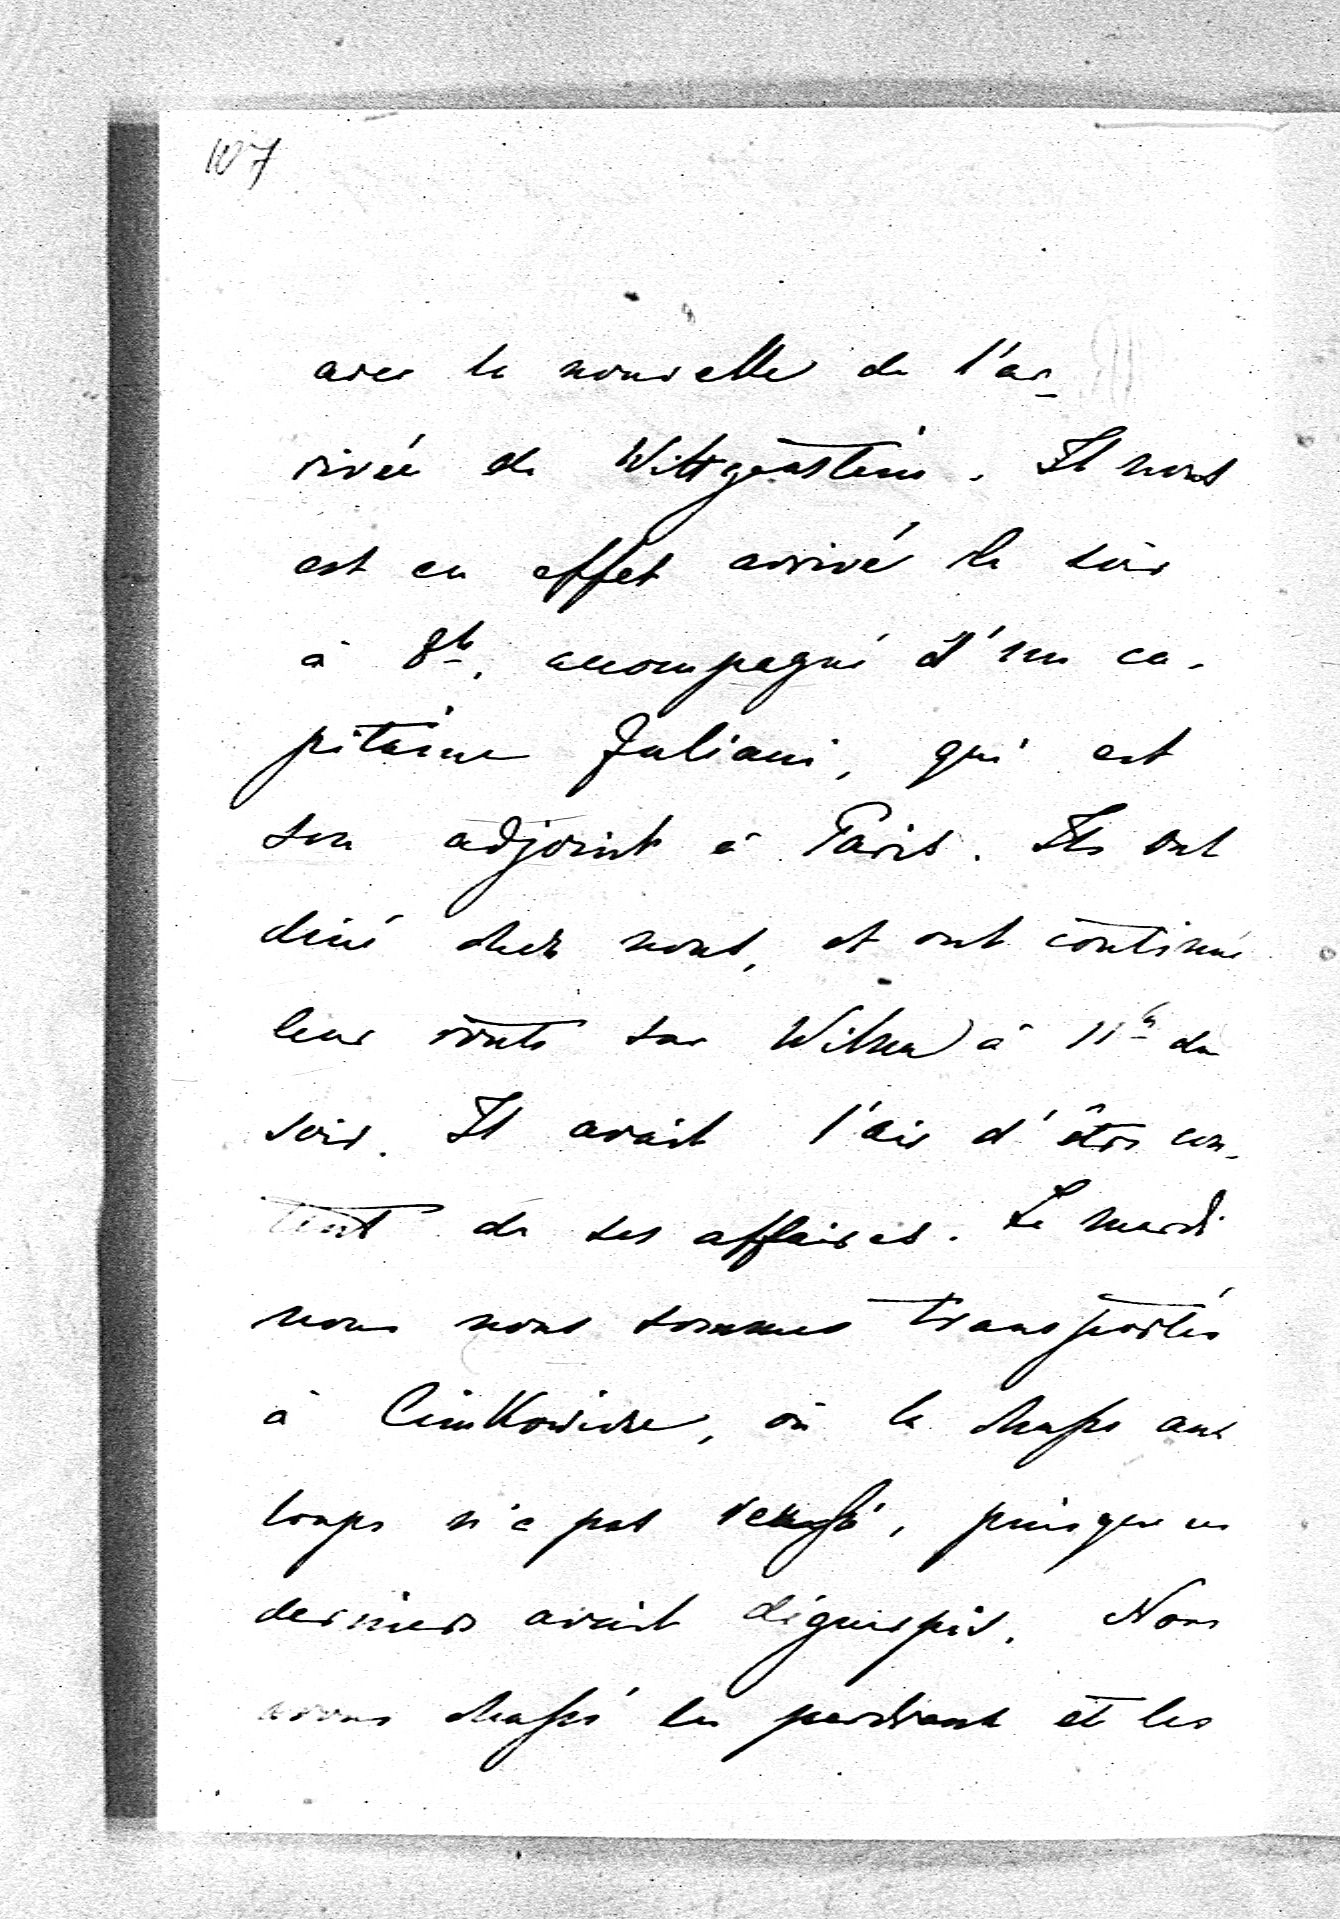 107
avec la nouvelle de l'ar-
rivée de Wittgenstein. Il nous
est en effet arrivé le soir
à 8h, accompagné d'un ca-
pitaine Juliani, qui est
son adjoint à Paris. Ils ont
diné chez nous, et ont continué
leur route sur Wilna à 11h du
soir. Il avait l'air d'être con-
tent de ses affaires. Le mardi
nous nous sommes transportés
à Cimkowicze, où la chasse aux
loups n'a pas reussi, puisque ces
derniers avait déguerpis. Nous
avons chassé les perdreaux et les